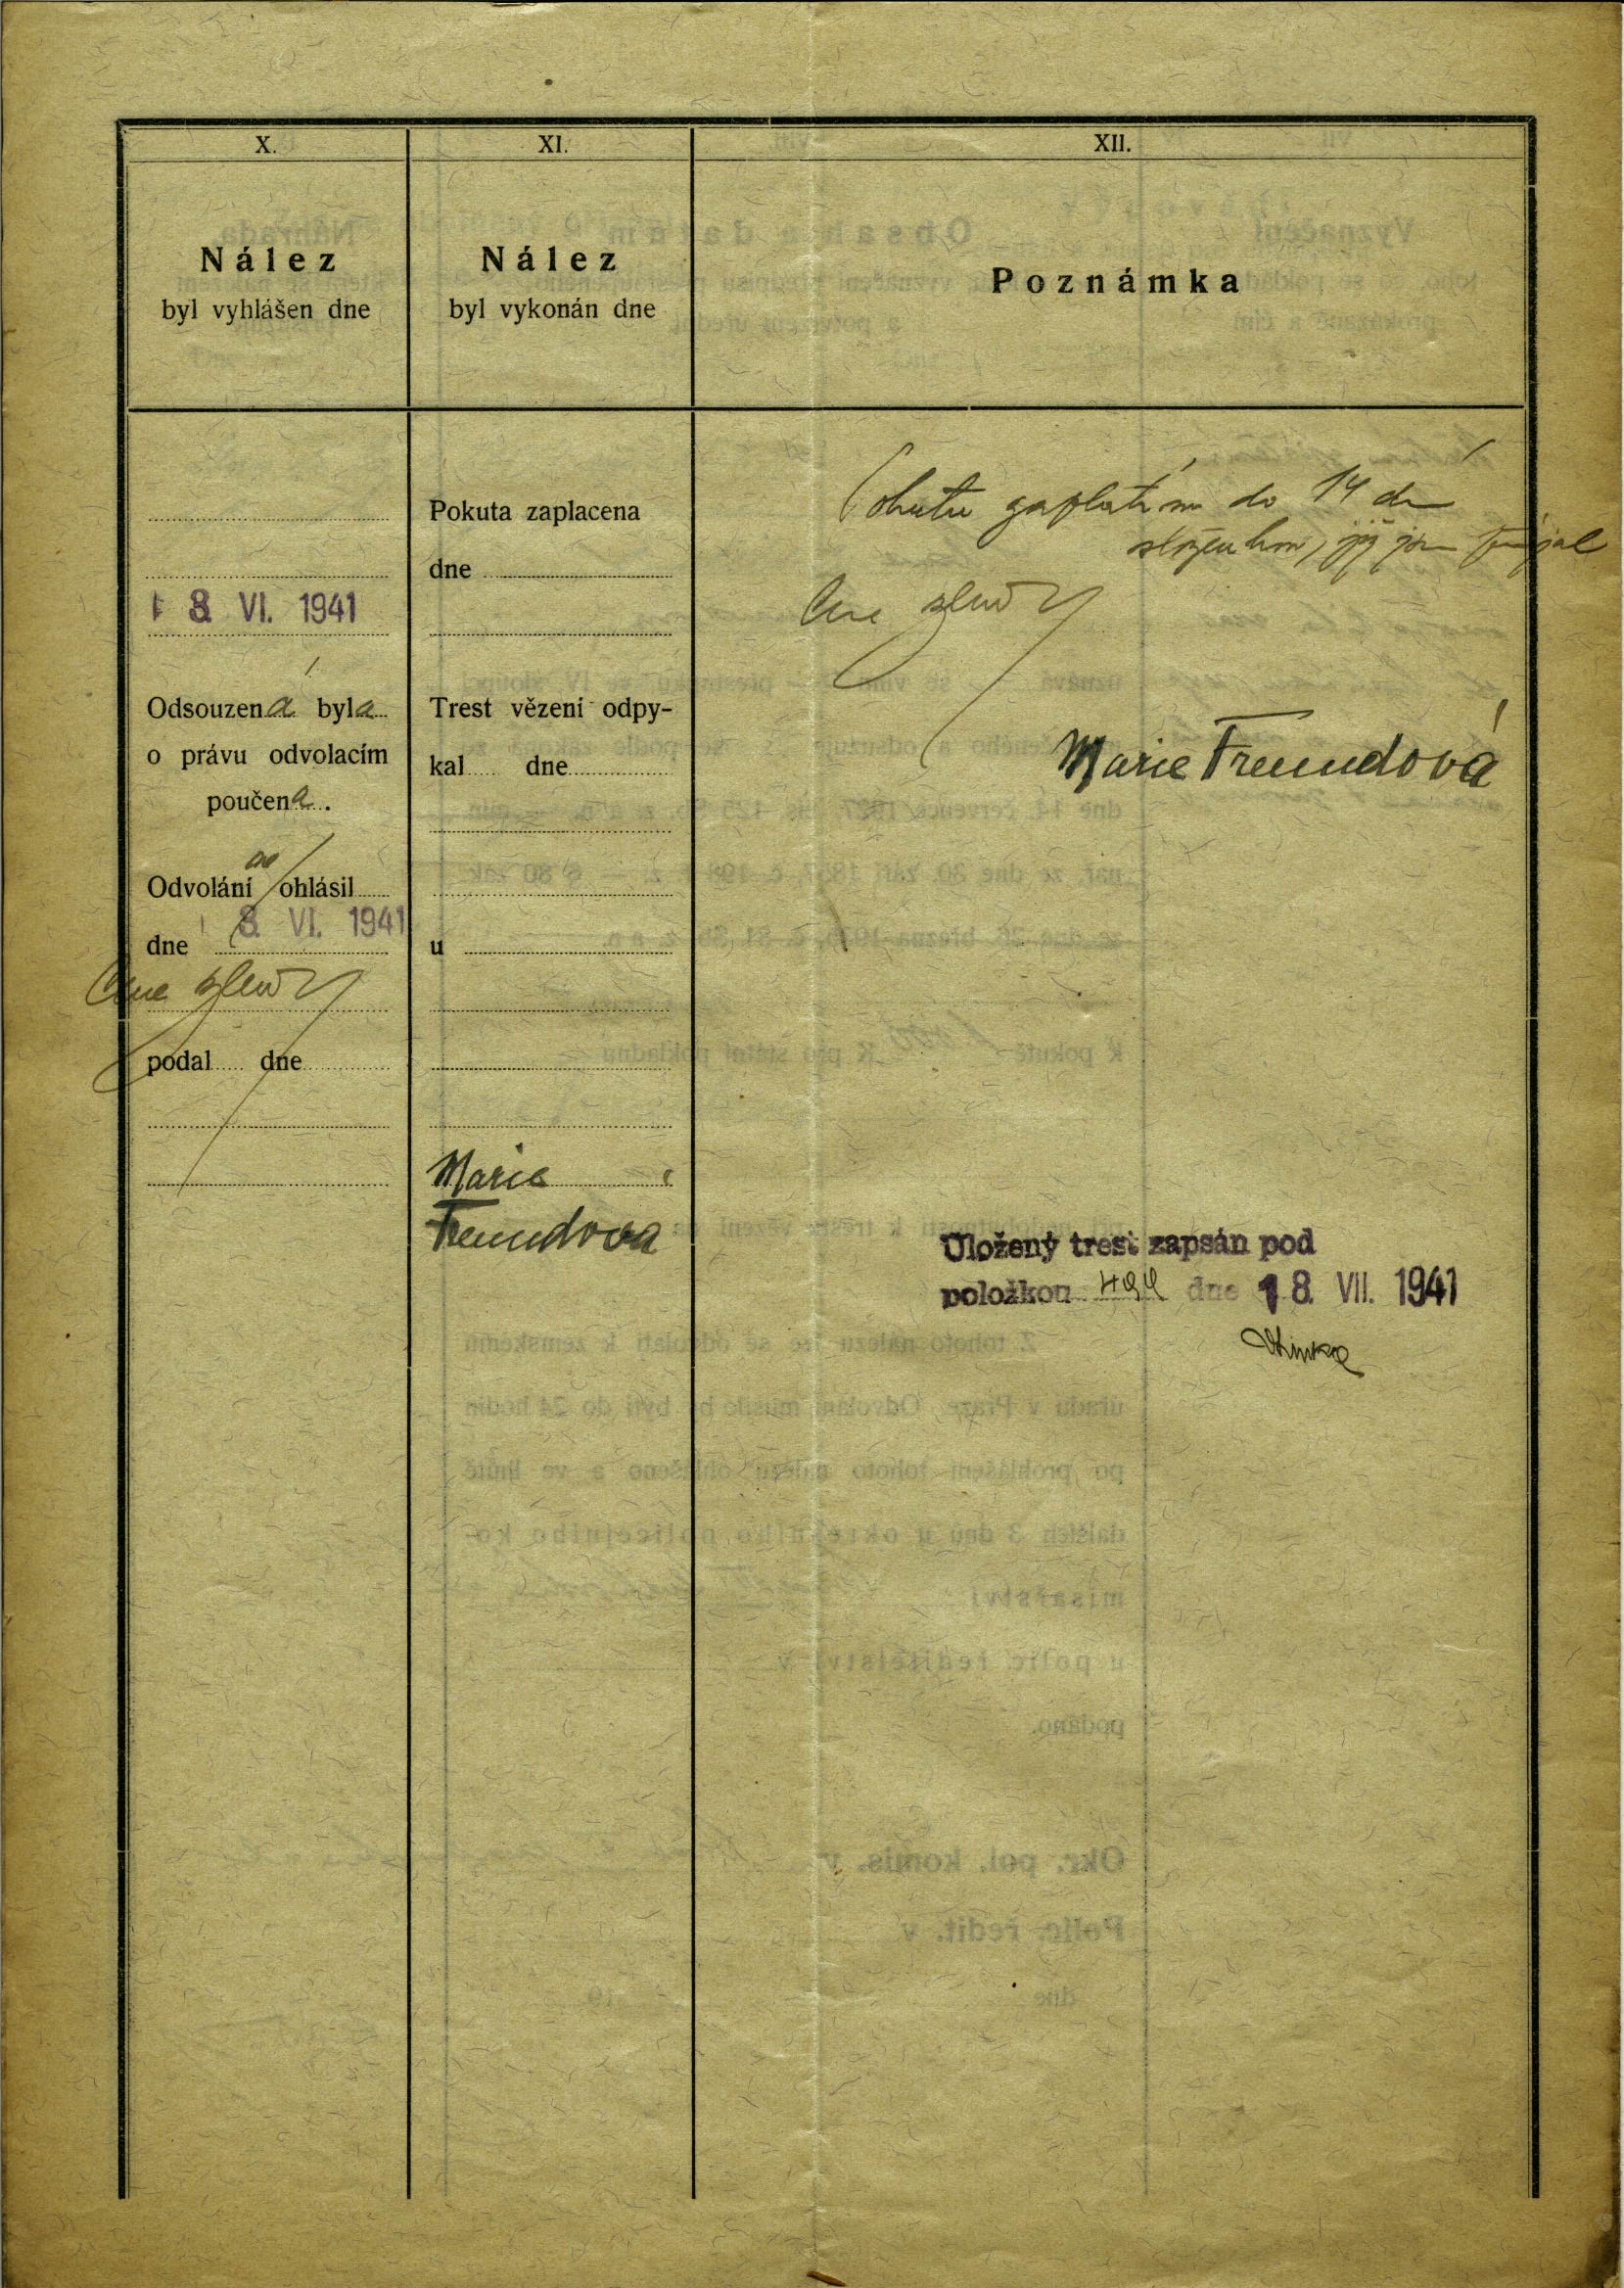 X.
XI.
XII.
Nález
byl vyhlášen dne
Nález
byl vykonán dne
Poznámka
18. VI. 1941
Odsouzená byla
o právu odvolacím
poučena.
Odvolání ohlásil
dne 18. VI. 1941
podal dne
Pokuta zaplacena
dne
Trest vězení odpy-
kal dne
u
Marie
Freundova
Pokutu zaplatím do 14 dní
Marie Freundová
Uložený trest zapsán pod
položkou dne 18. VII. 1941